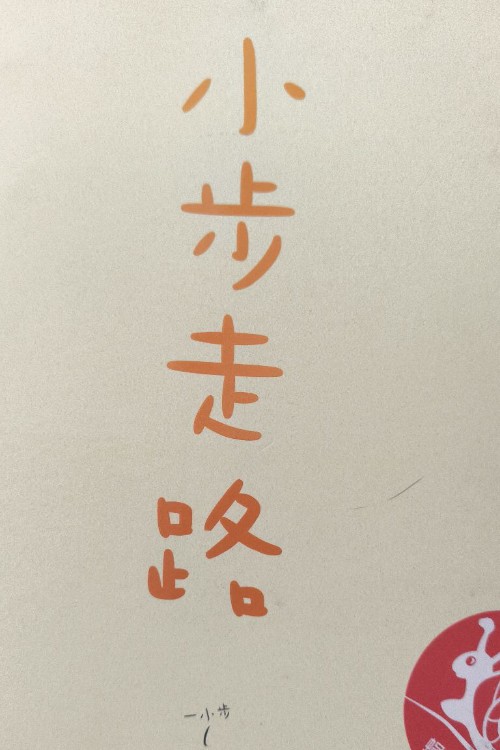 小步走路
一小步